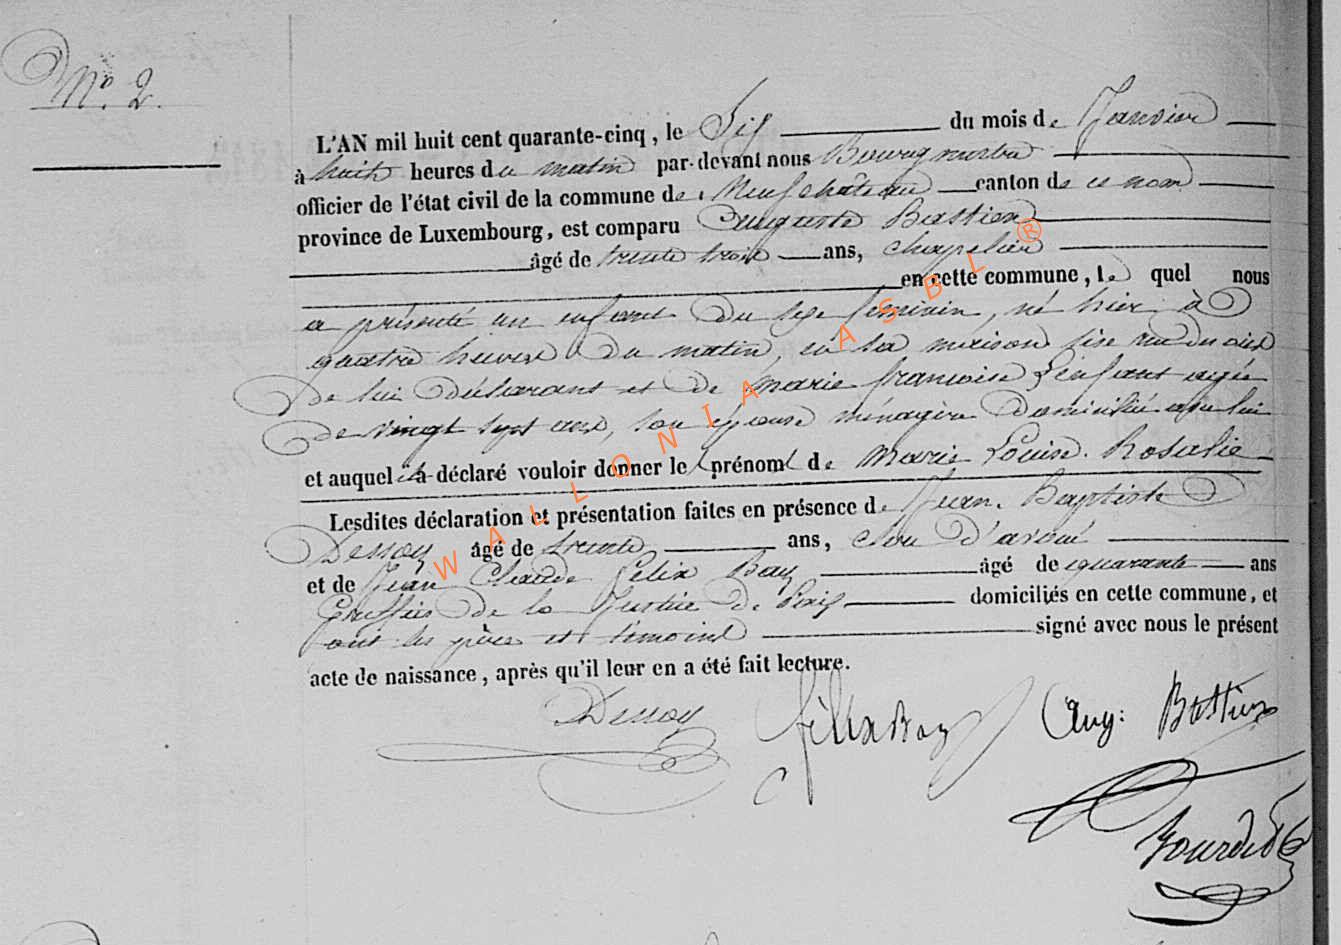 No. 2.
L'AN mil huit cent quarante-cinq, le Six du mois de Janvier
à huit heures du matin par-devant nous Bourgmestre
officier de l'état civil de la commune de Neufchâteau canton de ce nom
province de Luxembourg, est comparu Auguste Bastien
âgé de trente trois ans, chapelier
en cette commune, le quel nous
a présenté un enfant du sexe féminin, né hier à
quatre heures du matin, en sa maison sise rue du
de lui déclarant et de Marie françoise Lenfant agée
de vingt sept ans, son épouse ménagère domiciliée avec lui
et auquel il a déclaré vouloir donner le prénom de Marie Louise Rosalie
Lesdites déclaration et présentation faites en présence de Jean Baptiste
Dessoy âgé de trente ans, clerc d'avoué
et de Jean Claude Felix Bay âgé de quarante ans
Greffier de la Justice de Paix domiciliés en cette commune, et
ont les père et témoins signé avec nous le présent
acte de naissance, après qu'il leur en a été fait lecture.
Dessoy félix Bay Aug: Bastien
WALLONIA ASBL ®